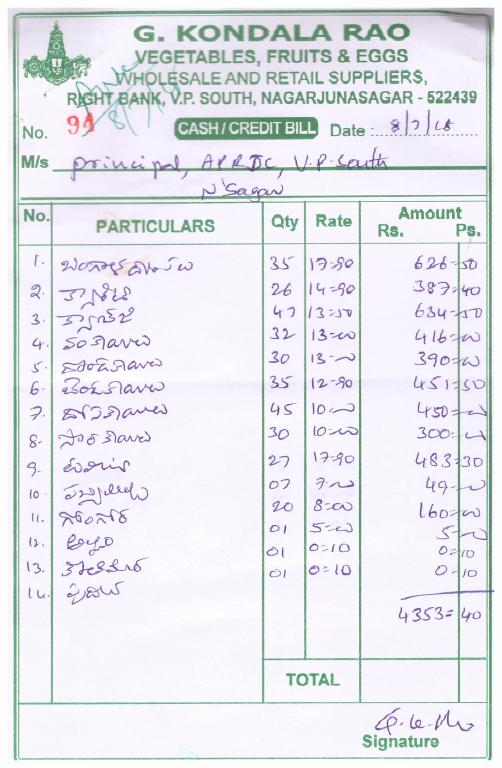 G. KONDALA RAO
VEGETABLES, FRUITS & EGGS
WHOLESALE AND RETAIL SUPPLIERS,
RIGHT BANK, V.P. SOUTH, NAGARJUNASAGAR - 522439
No. 94 CASH / CREDIT BILL Date : 8/7/18
M/s principal, APRDC, V.P. South
N'Sagar
No. PARTICULARS Qty Rate Amount Rs. Ps.
1. బంగాళదుంపలు 35 17=90 626=50
2. క్యారెట్ 26 14=90 387=40
3. క్యాబేజి 47 13=50 634=50
4. వంకాయలు 32 13=00 416=00
5. దొండకాయలు 30 13=00 390=00
6. బెండకాయలు 35 12=90 451=50
7. దోసకాయలు 45 10=00 450=00
8. సొరకాయలు 30 10=00 300=00
9. టమాట 27 17=90 483=30
10. పచ్చిమిర్చి 07 7=00 49=00
11. గోంగూర 20 8=00 160=00
12. అల్లం 01 5=00 5=00
13. కొతిమీర 01 0=10 0=10
14. పుదీన 01 0=10 0=10
4353=40
TOTAL
Signature